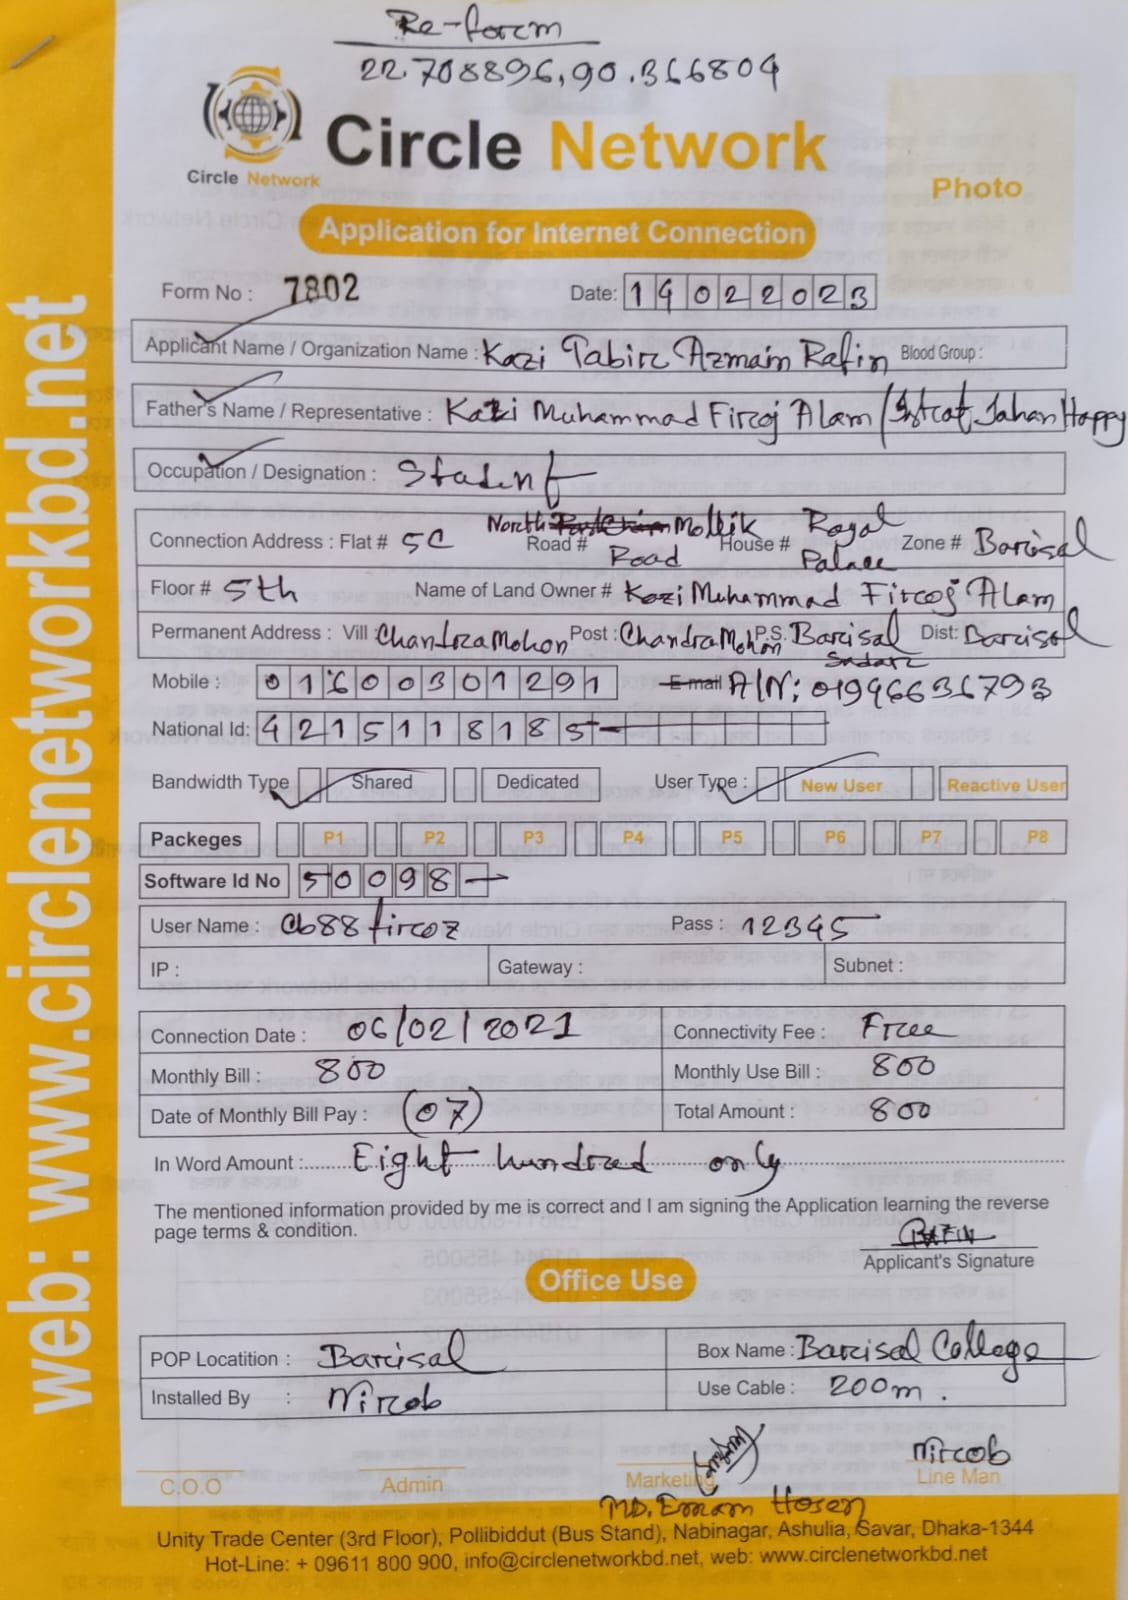 Re-form
22.708896,90.366804
Circle Network
Circle Network
Photo
Application for Internet Connection
Form No : 7802 Date: 14022023
Applicant Name / Organization Name : Kazi Tabir Azmain Rafin Blood Group :
Father's Name / Representative : Kazi Muhammad Firoj Alam / Israt Jahan Happy
Occupation / Designation : Student
Connection Address : Flat # 5C Road # North Mollik Road House # Royal Palace Zone # Barisal
Floor # 5th Name of Land Owner # Kazi Muhammad Firoj Alam
Permanent Address : Vill : Chandra Mohon Post : Chandra Mohon P.S. Barisal Sadar Dist: Barisal
Mobile : 01600301291 E-mail A/N: 01996636793
National Id: 4215118185
Bandwidth Type Shared Dedicated User Type : New User Reactive User
Packeges P1 P2 P3 P4 P5 P6 P7 P8
Software Id No 50098
User Name : cb88firoz Pass : 12345
IP : Gateway : Subnet :
Connection Date : 06/02/2021 Connectivity Fee : Free
Monthly Bill : 800 Monthly Use Bill : 800
Date of Monthly Bill Pay : (07) Total Amount : 800
In Word Amount :...... Eight hundred only
The mentioned information provided by me is correct and I am signing the Application learning the reverse
page terms & condition.
RAFIN
Applicant's Signature
Office Use
POP Locatition : Barisal Box Name : Barisal College
Installed By : Nirob Use Cable : 200m.
Nirob
C.O.O Admin Marketing Line Man
MD. Emam Hosen
Unity Trade Center (3rd Floor), Pollibiddut (Bus Stand), Nabinagar, Ashulia, Savar, Dhaka-1344
Hot-Line: + 09611 800 900, info@circlenetworkbd.net, web: www.circlenetworkbd.net
web: www.circlenetworkbd.net